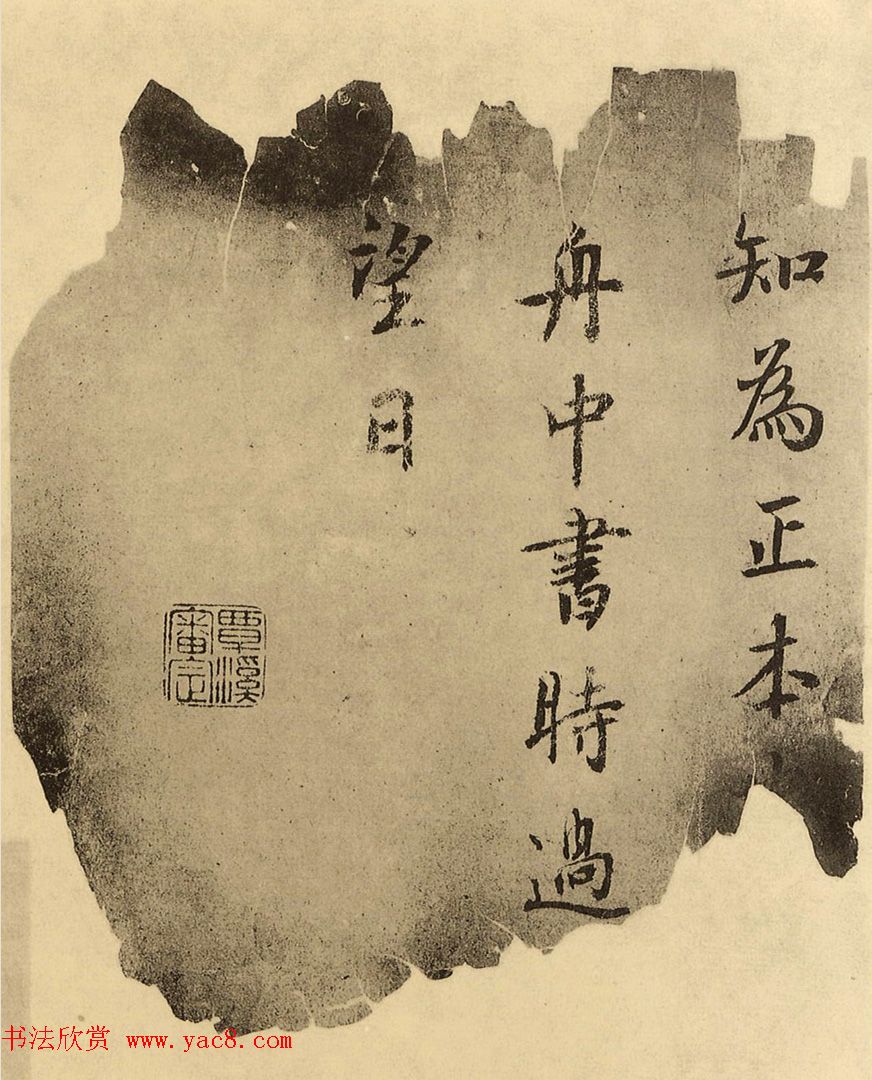 知為正本
舟中書時過
望日
覃溪
審定
书法欣赏 www.yac8.com